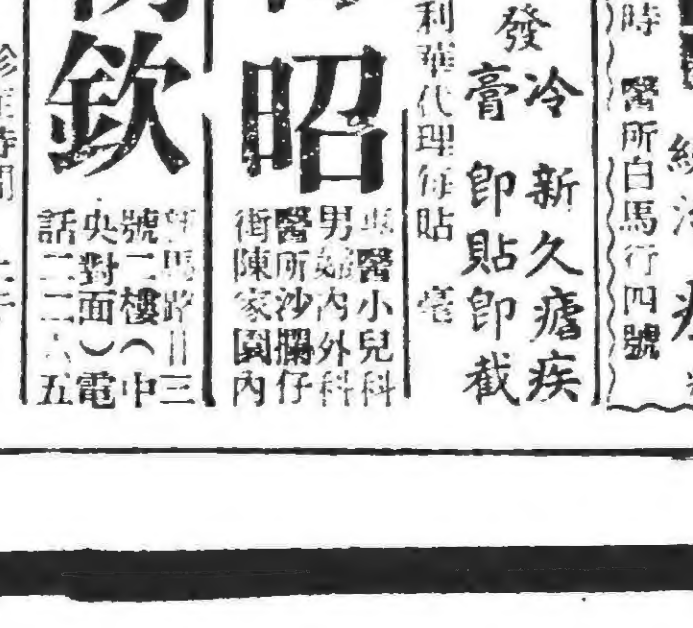 時 醫所白馬行四號
發冷膏
新久瘧疾
即貼即截
利華代理每貼 毫
昭
專醫小兒科
男婦內外科
醫所沙攔仔
街陳家園內
欽
新馬路〢三
號二樓(中
央對面)電
話二二 五
診症時間